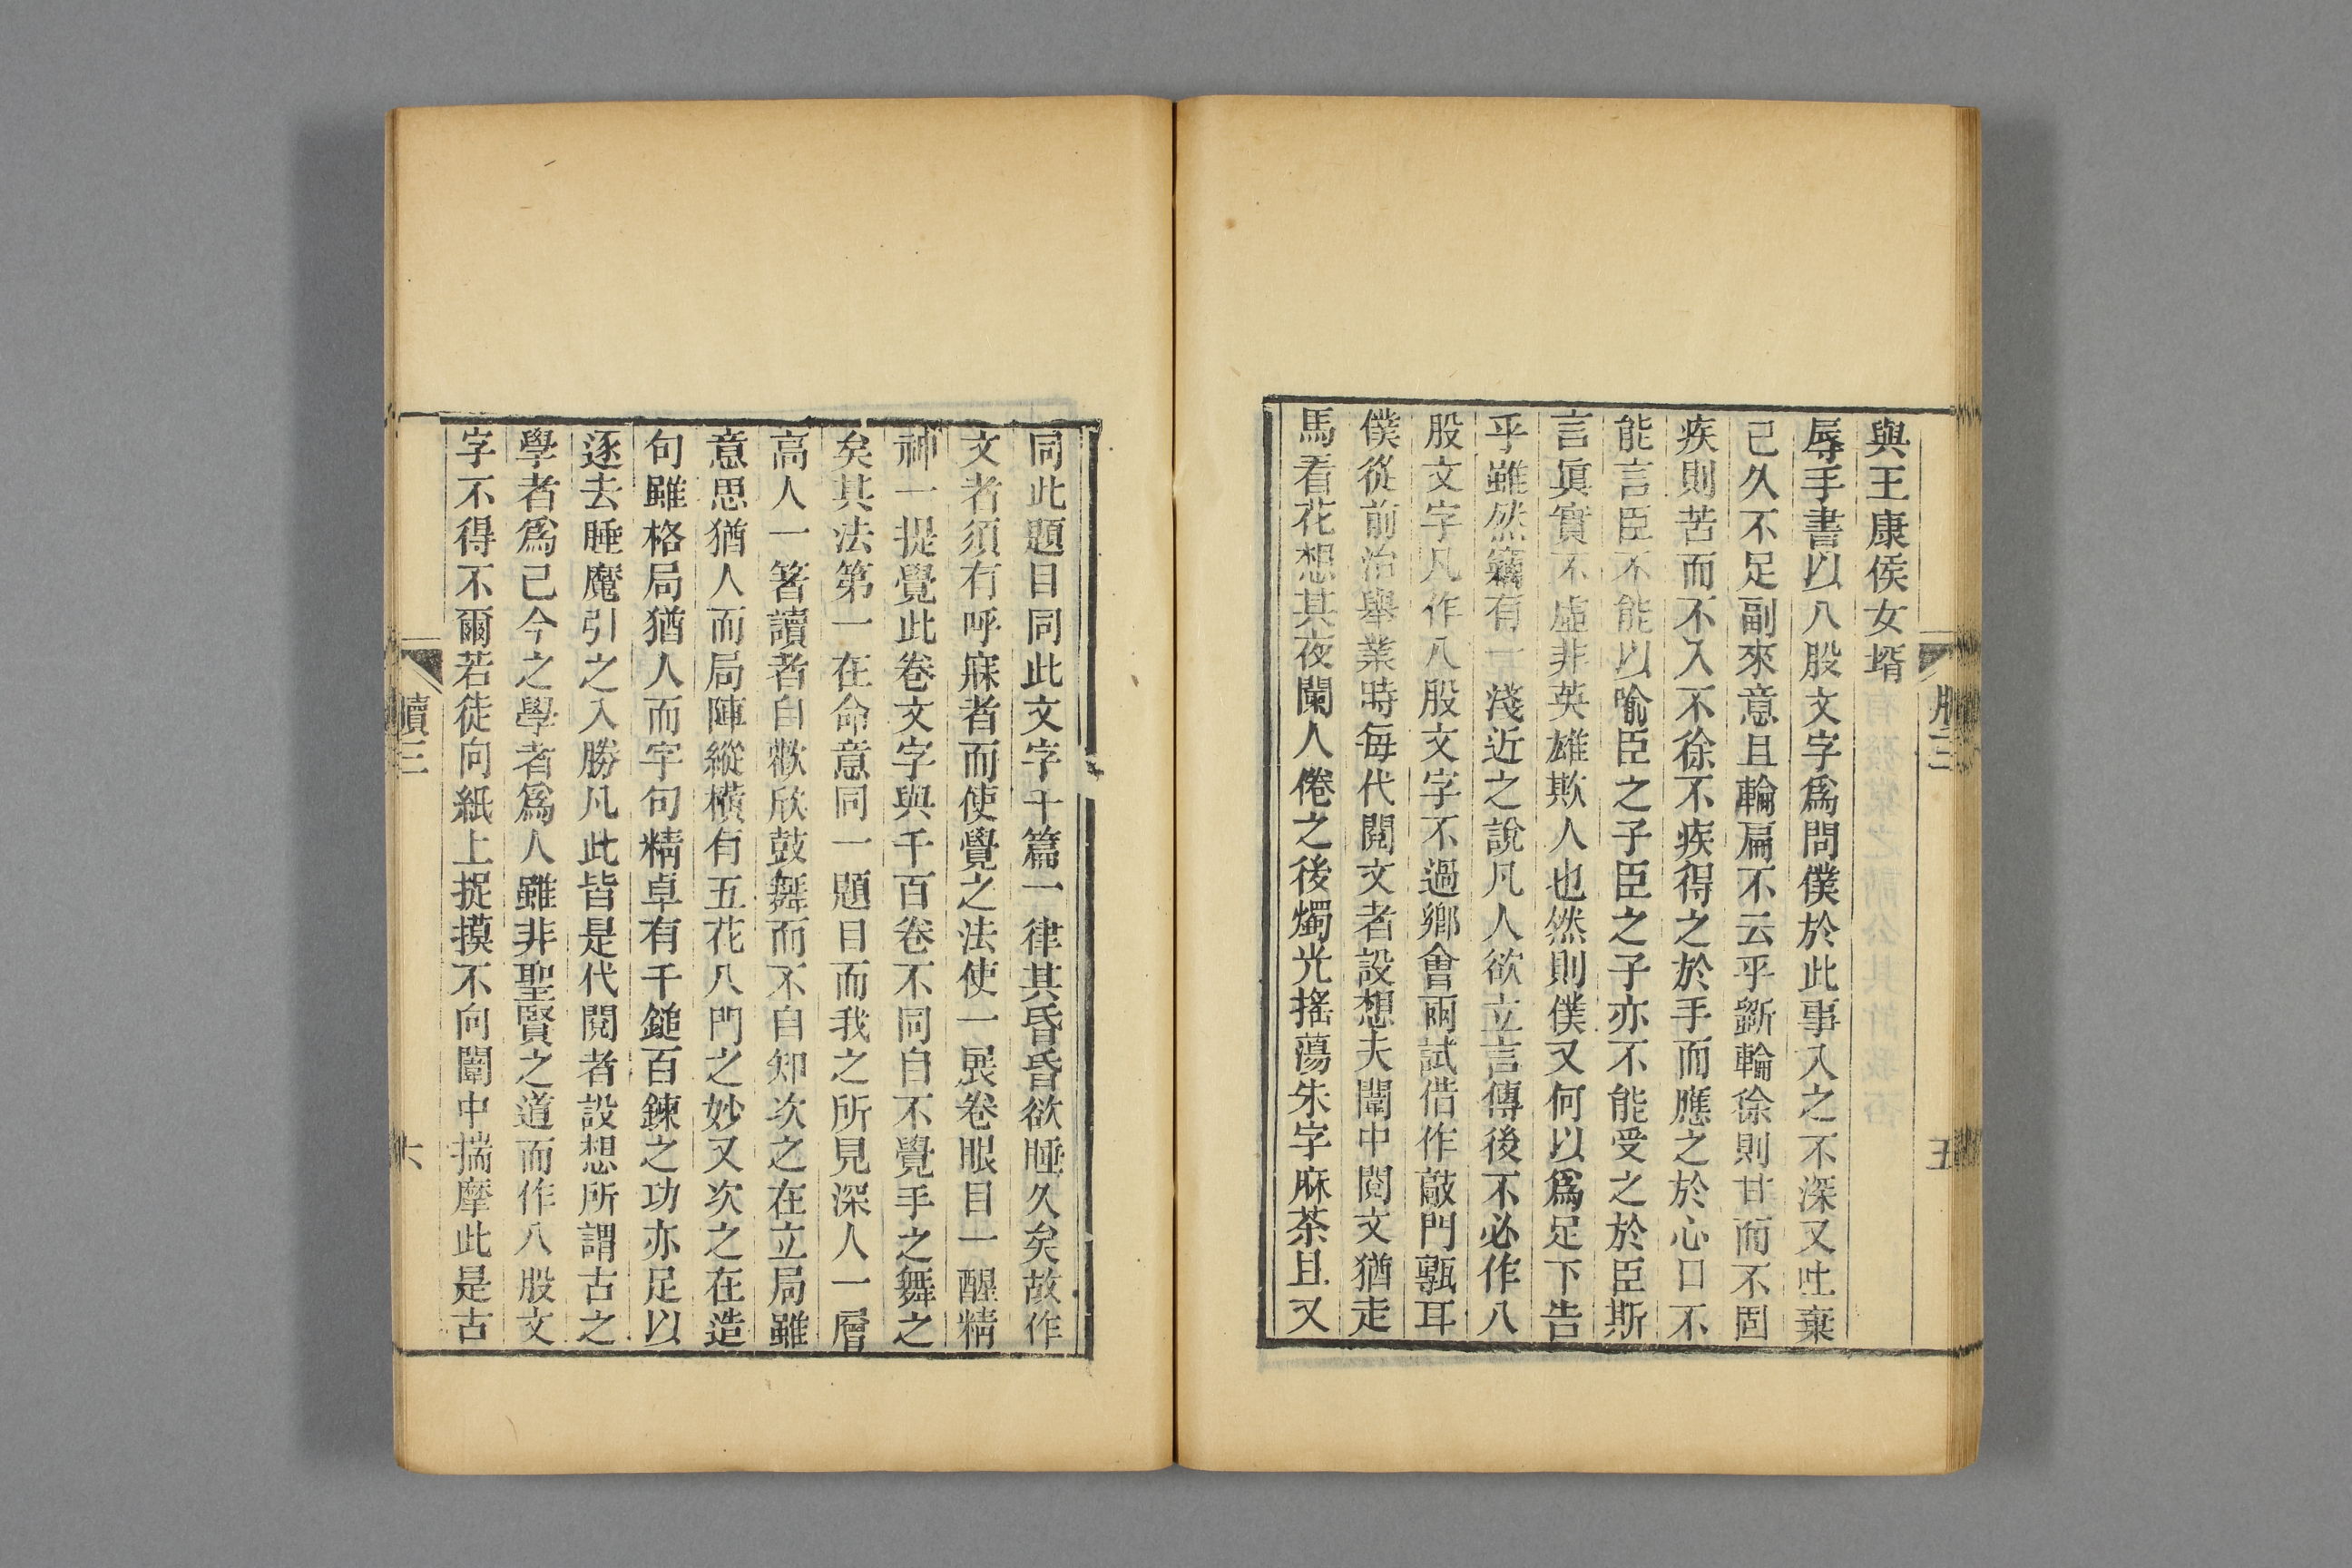 與王康侯女壻
辱手書以八股文字爲問僕於此事入之不深又吐棄
己久不足副來意且輪扁不云乎斵輪徐則甘而不固
疾則苦而不入不徐不疾得之於手而應之於心口不
能言臣不能以喻臣之子臣之子亦不能受之於臣斯
言眞實不虛非英雄欺人也然則僕又何以爲足下告
乎雖然竊有一淺近之說凡人欲立言傳後不必作八
股文字凡作八股文字不過鄉會兩試偕作敲門㼾耳
僕從前治舉業時每代閱文者設想夫闈中閱文猶走
馬看花想其夜闌人倦之後燭光搖蕩朱字麻茶且又
同此題目同此文字千篇一律其昏昏欲睡久矣故作
文者須有呼寐者而使覺之法使一展卷眼目一醒精
神一提覺此卷文字與千百卷不同自不覺手之舞之
矣其法第一在命意同一題目而我之所見深人一層
高人一箸讀者自歡欣鼓舞而不自知次之在立局雖
意思猶人而局陣縱橫有五花八門之妙又次之在造
句雖格局猶人而字句精卓有千鎚百鍊之功亦足以
逐去睡魔引之入勝凡此皆是代閱者設想所謂古之
學者爲己今之學者爲人雖非聖賢之道而作八股文
字不得不爾若徒向紙上捉摸不向闈中揣摩此是古
牘三
六